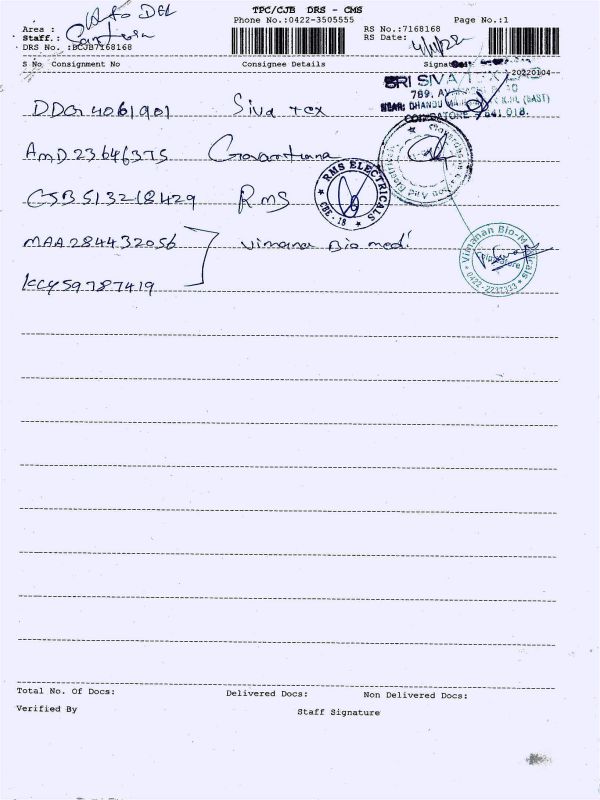 TPC/CJB DRS - CMS
Auto DEL
Area :
Phone No.:0422-3505555
Page No.:1
Staff.: Santosh
RS No.:7168168
DRS No. :BCJB7168168
RS Date: 4/1/22
20220104
S No Consignment No Consignee Details Signature
DDG 4061901 Siva Tex
SRI SIVA
789,
NEAR:
COIMBATORE - 641 018.
AMD 23646375 Govarthana
CJB 513218429 RMS
RMS ELECTRICALS
CBE - 18
MAA 284432056 Vimana Bio medi
Vimanan Bio-Medicals
0422-2237333
KCY 59787419
Total No. Of Docs: Delivered Docs: Non Delivered Docs:
Verified By Staff Signature